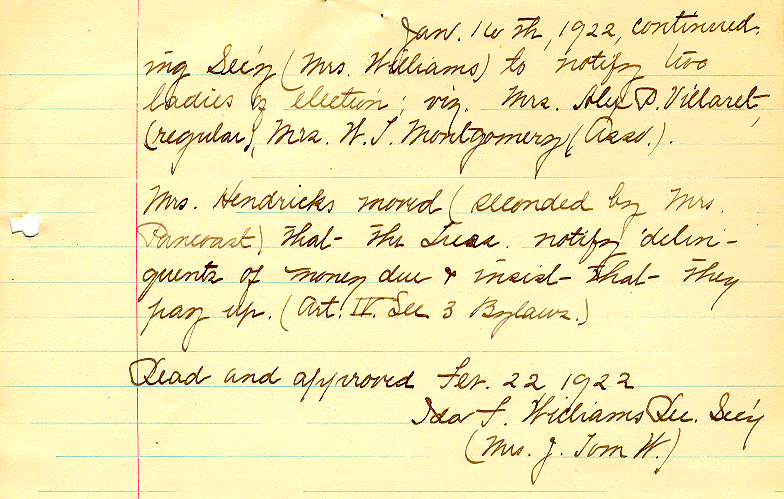 Jan. 16th, 1922, continued.
ing Sec'y (Mrs. Williams) to notify two
ladies of election; viz. Mrs. Alex P. Villaret,
(regular), Mrs. W. T. Montgomery (Asso.).
Mrs. Hendricks moved (seconded by Mrs.
Pancoast) that the Treas. notify delin-
quents of money due & insist that they
pay up. (Art. IV. Sec 3 Bylaws.)
Read and approved Feb. 22 1922
Ida T. Williams Rec. Sec'y
(Mrs. J. Tom W.)